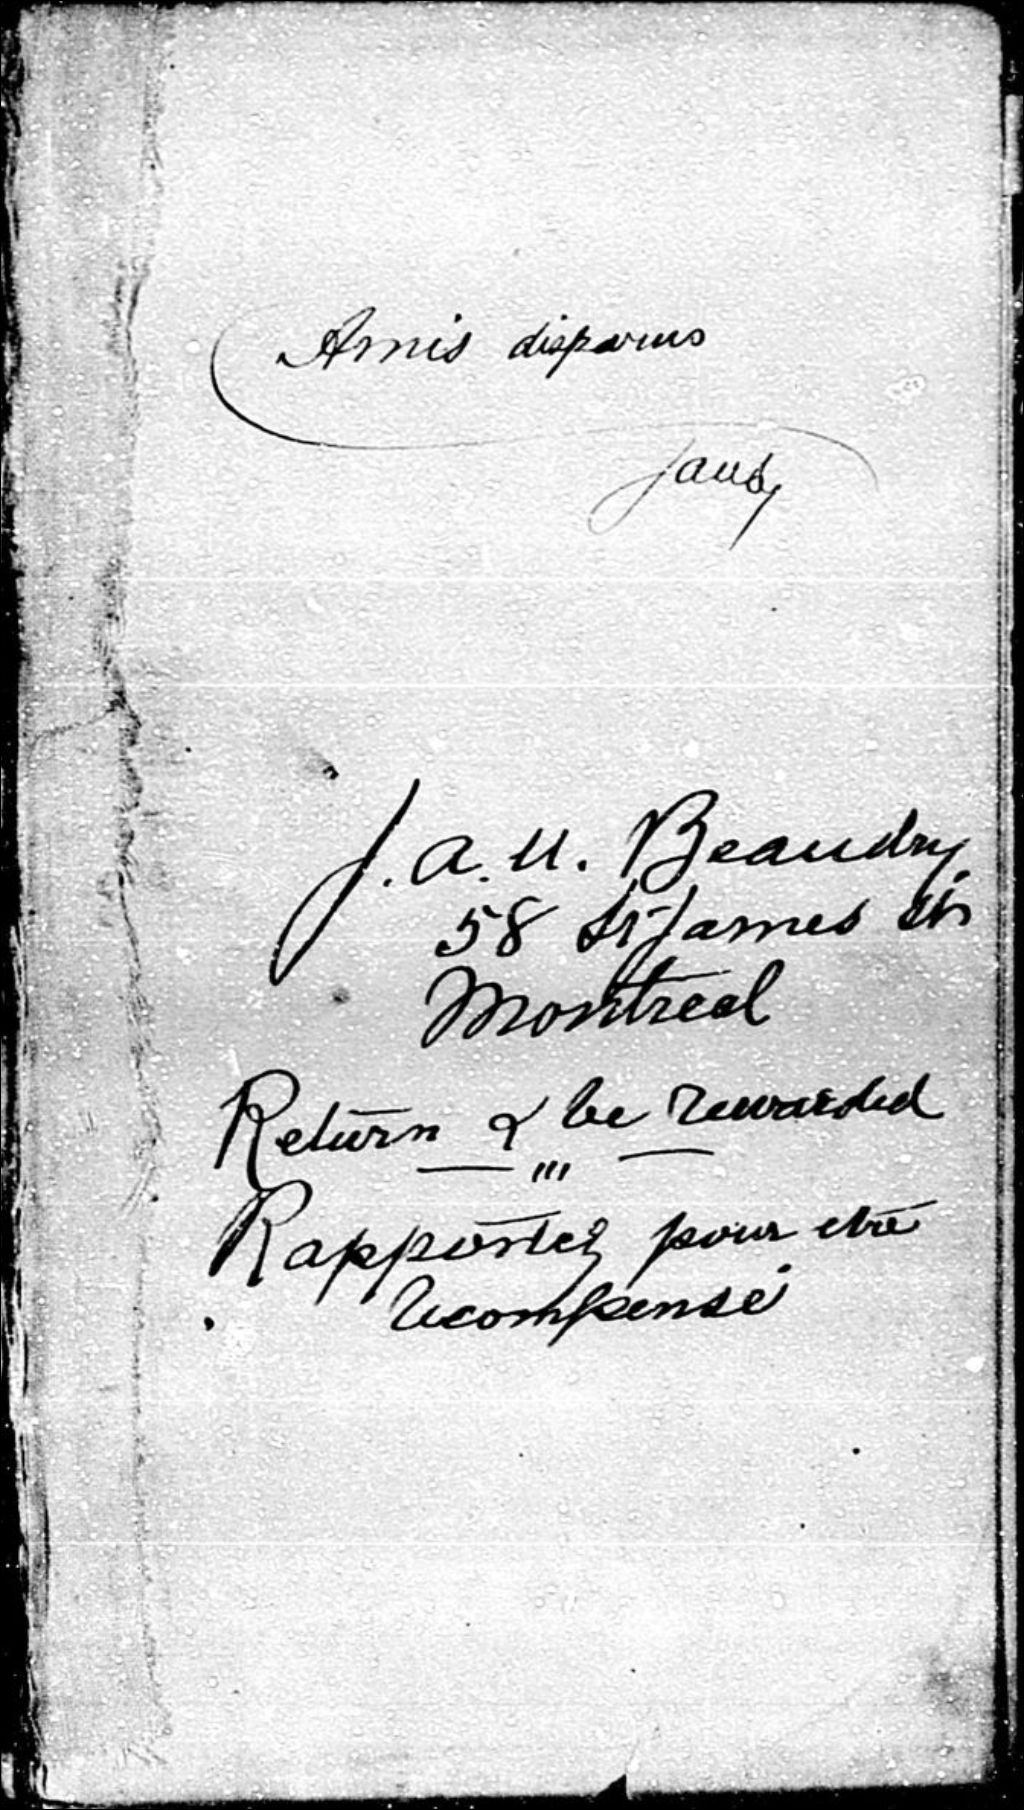 Amis disparus
J. A. U. Beaudry
58 St James St
Montreal
Return & be rewarded
"'
Rapportez pour etre
recompensé